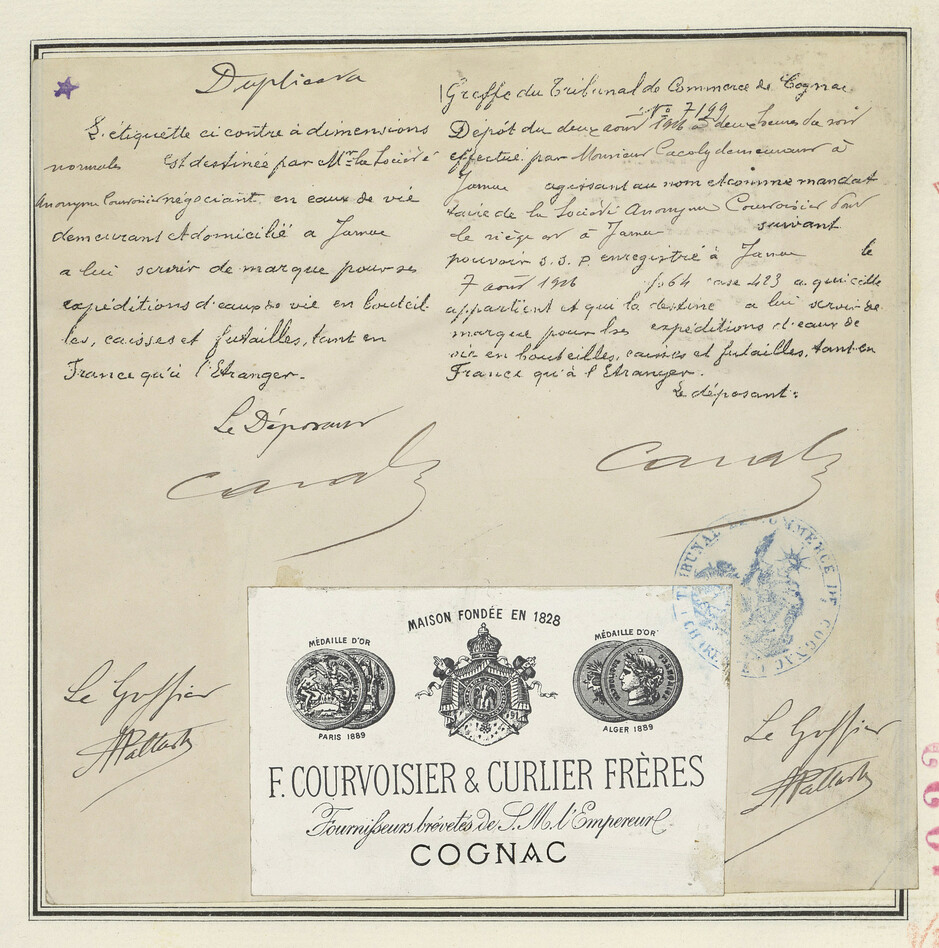 Duplicata
L'étiquette ci contre à dimensions
normales est destinée par Mr. la Société
Anonyme Courvoisier négociant en eaux de vie
demeurant et domicilié a Jarnac
a lui servir de marque pour ses
expéditions d'eaux de vie en bouteil-
les, caisses et futailles, tant en
France qu'à l'Etranger.
Le Déposant
Greffe du Tribunal de Commerce de Cognac
No 7199
Dépôt du deux août 1926 à deux heures du soir
effectué par Monsieur demeurant à
Jarnac agissant au nom et comme manda-
taire de la Société Anonyme Courvoisier dont
le siège est à Jarnac suivant
pouvoir s.s.p. enregistré à Jarnac le
7 août 1926 fo 64 case 423 a qui elle
appartient et qui la destine a lui servir de
marque pour les expéditions d'eaux de
vie en bouteilles, caisses et futailles, tant en
France qu'à l'Etranger.
Le déposant:
TRIBUNAL DE COMMERCE DE COGNAC
MAISON FONDÉE EN 1828
MÉDAILLE D'OR
MÉDAILLE D'OR
PARIS 1889
ALGER 1889
F. COURVOISIER & CURLIER FRÈRES
Fournisseurs brévetés de S. M. l'Empereur
COGNAC
Le Greffier
Le Greffier